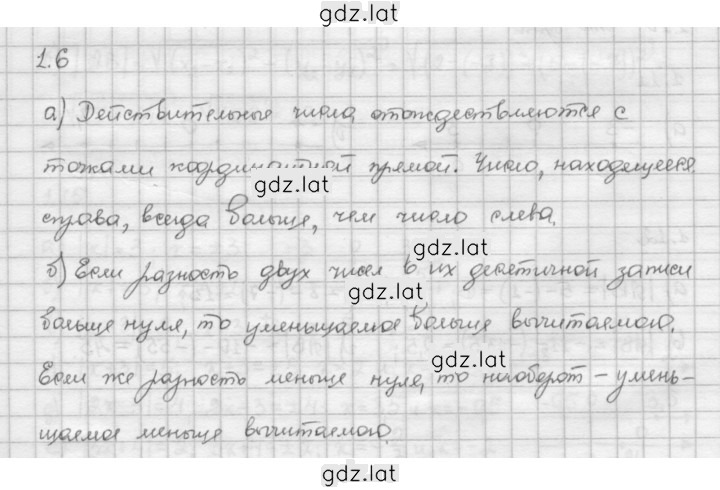 gdz.lat
1.6
а) Действительные числа отождествляются с
точками координатной прямой. Число, находящееся
gdz.lat
справа, всегда больше, чем число слева.
gdz.lat
б) Если разность двух чисел в их десятичной записи
gdz.lat
больше нуля, то уменьшаемое больше вычитаемого.
gdz.lat
Если же разность меньше нуля, то наоборот – умень-
щаемое меньше вычитаемого.
gdz.lat